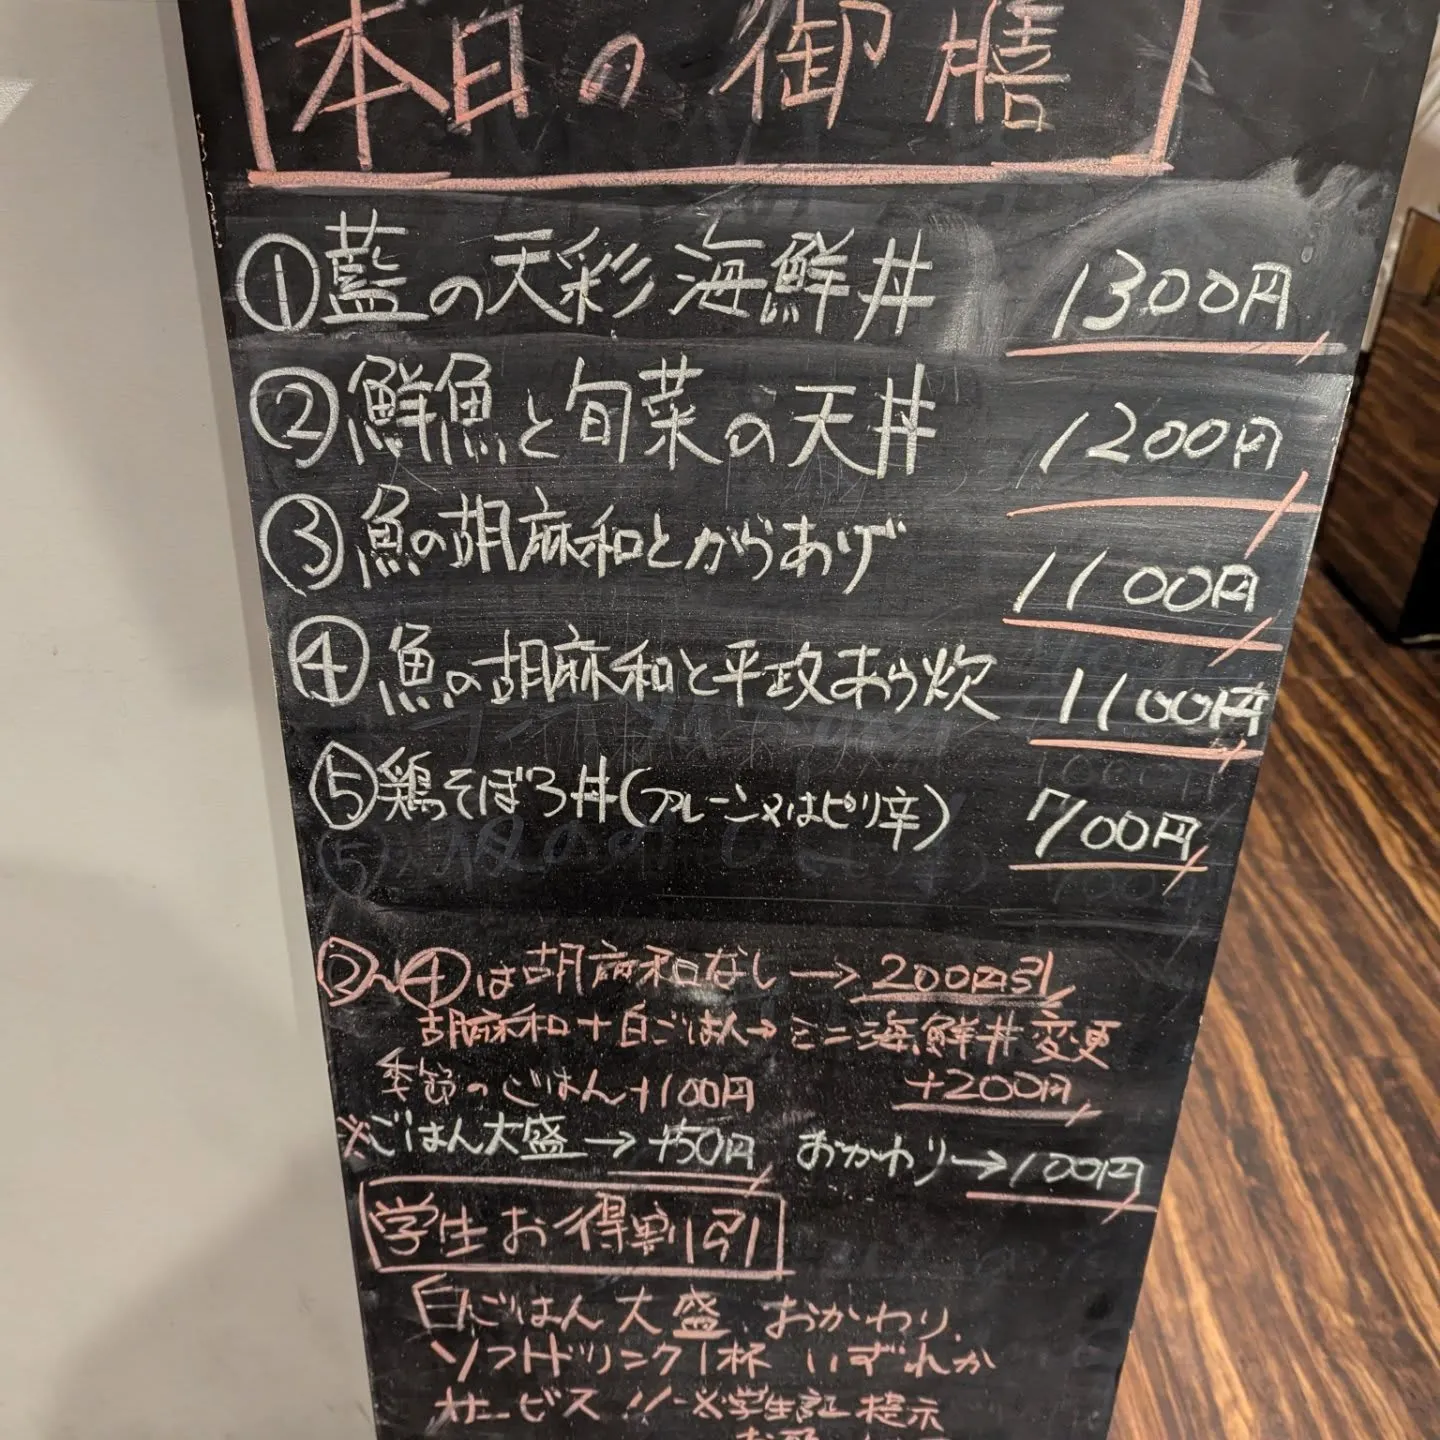 本日の御膳
①藍の天彩海鮮丼 1300円
②鮮魚と旬菜の天丼 1200円
③魚の胡麻和とからあげ 1100円
④魚の胡麻和と平政あら炊 1100円
⑤鶏そぼろ丼(プレーン又はピリ辛) 700円
④は胡麻和なし→200円引
胡麻和+白ごはん→ミニ海鮮丼変更
季節のごはん+100円 +200円
※ごはん大盛→+50円 おかわり→100円
学生お得割引
白ごはん大盛、おかわり、
ソフトドリンク1杯 いずれか
サービス ※学生証提示